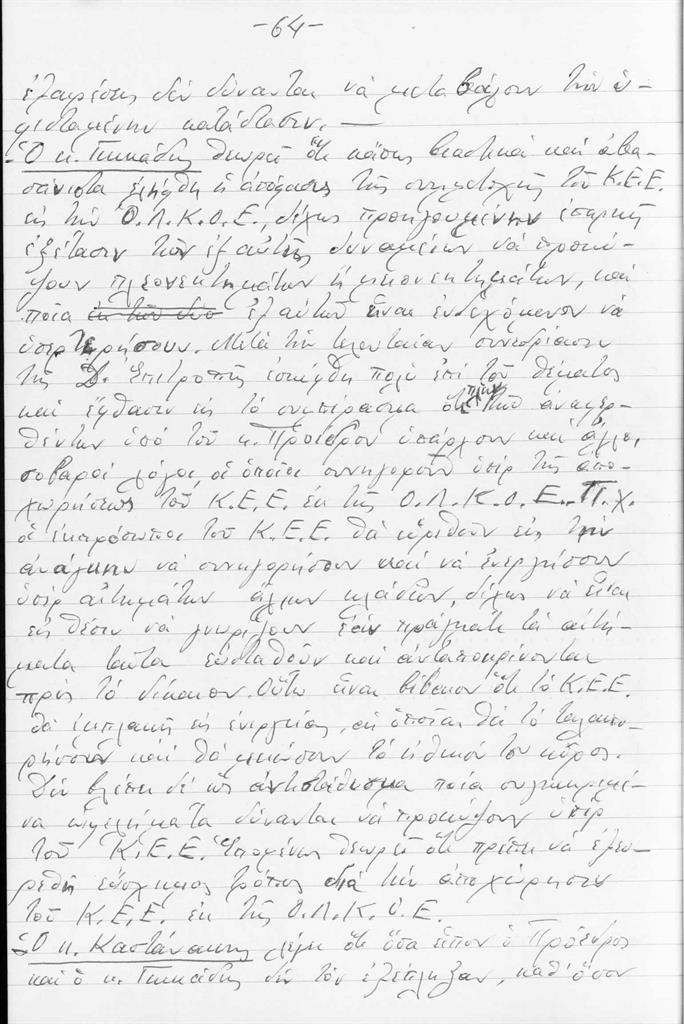 -64-
ἐλαφρέσεις δέν δύνανται νά μεταβάλουν τήν ὑ-
φισταμένην κατάστασιν. —
Ὁ κ. Γιγκάδης θεωρεῖ ὅτι κάπως βιαστικά καί ἀβα-
σάνιστα ἐλήφθη ἡ ἀπόφασις τῆς συμμετοχῆς τοῦ Κ.Ε.Ε.
εἰς τήν Ο.Λ.Κ.Ο.Ε., δίχως προηγουμένην ἐπαρκῆ
ἐξέτασιν τῶν ἐξ αὐτῆς δυναμένων νά προκύ-
ψουν πλεονεκτημάτων ἤ μειονεκτημάτων, καί
ποῖα ἐκ τῶν δύο ἐξ αὐτῶν εἶναι ἐνδεχόμενον νά
ὑπερτερήσουν. Μετά τήν τελευταίαν συνεδρίασιν
τῆς Δ. Ἐπιτροπῆς ἐσκέφθη πολύ ἐπί τοῦ θέματος
καί ἔφθασεν εἰς τό συμπέρασμα ὅτι πλήν τῶν ἀναφερ-
θέντων ὑπό τοῦ κ. Προέδρου ὑπάρχουν καί ἄλλοι
σοβαροί λόγοι οἱ ὁποῖοι συνηγοροῦν ὑπέρ τῆς ἀπο-
χωρήσεως τοῦ Κ.Ε.Ε. ἐκ τῆς Ο.Λ.Κ.Ο.Ε. Π.χ.
οἱ ἐκπρόσωποι τοῦ Κ.Ε.Ε. θά εὑρεθοῦν εἰς τήν
ἀνάγκην νά συνηγορήσουν καί νά ἐνεργήσουν
ὑπέρ αἰτημάτων ἄλλων κλάδων, δίχως νά εἶναι
εἰς θέσιν νά γνωρίζουν ἐάν πράγματι τά αἰτή-
ματα ταῦτα εὐσταθοῦν καί ἀνταποκρίνονται
πρός τό δίκαιον. Οὕτω εἶναι βέβαιον ὅτι τό Κ.Ε.Ε.
θά ἐμπλακῇ εἰς ἐνεργείας, αἱ ὁποῖαι θά τό ταλαιπω-
ρήσουν καί θά μειώσουν τό ἠθικόν του κῦρος.
Δέν βλέπει δέ ὡς ἀντιστάθμισμα ποῖα συγκεκριμέ-
να ὠφελήματα δύνανται νά προκύψουν ὑπέρ
τοῦ Κ.Ε.Ε. Ἑπομένως θεωρεῖ ὅτι πρέπει νά ἐξευ-
ρεθῇ εὔσχημος τρόπος διά τήν ἀποχώρησιν
τοῦ Κ.Ε.Ε. ἐκ τῆς Ο.Λ.Κ.Ο.Ε.
Ὁ κ. Καστάνακης λέγει ὅτι ὅσα εἶπον ὁ Πρόεδρος
καί ὁ κ. Γιγκάδης δέν τόν ἐξέπληξαν, καθ' ὅσον